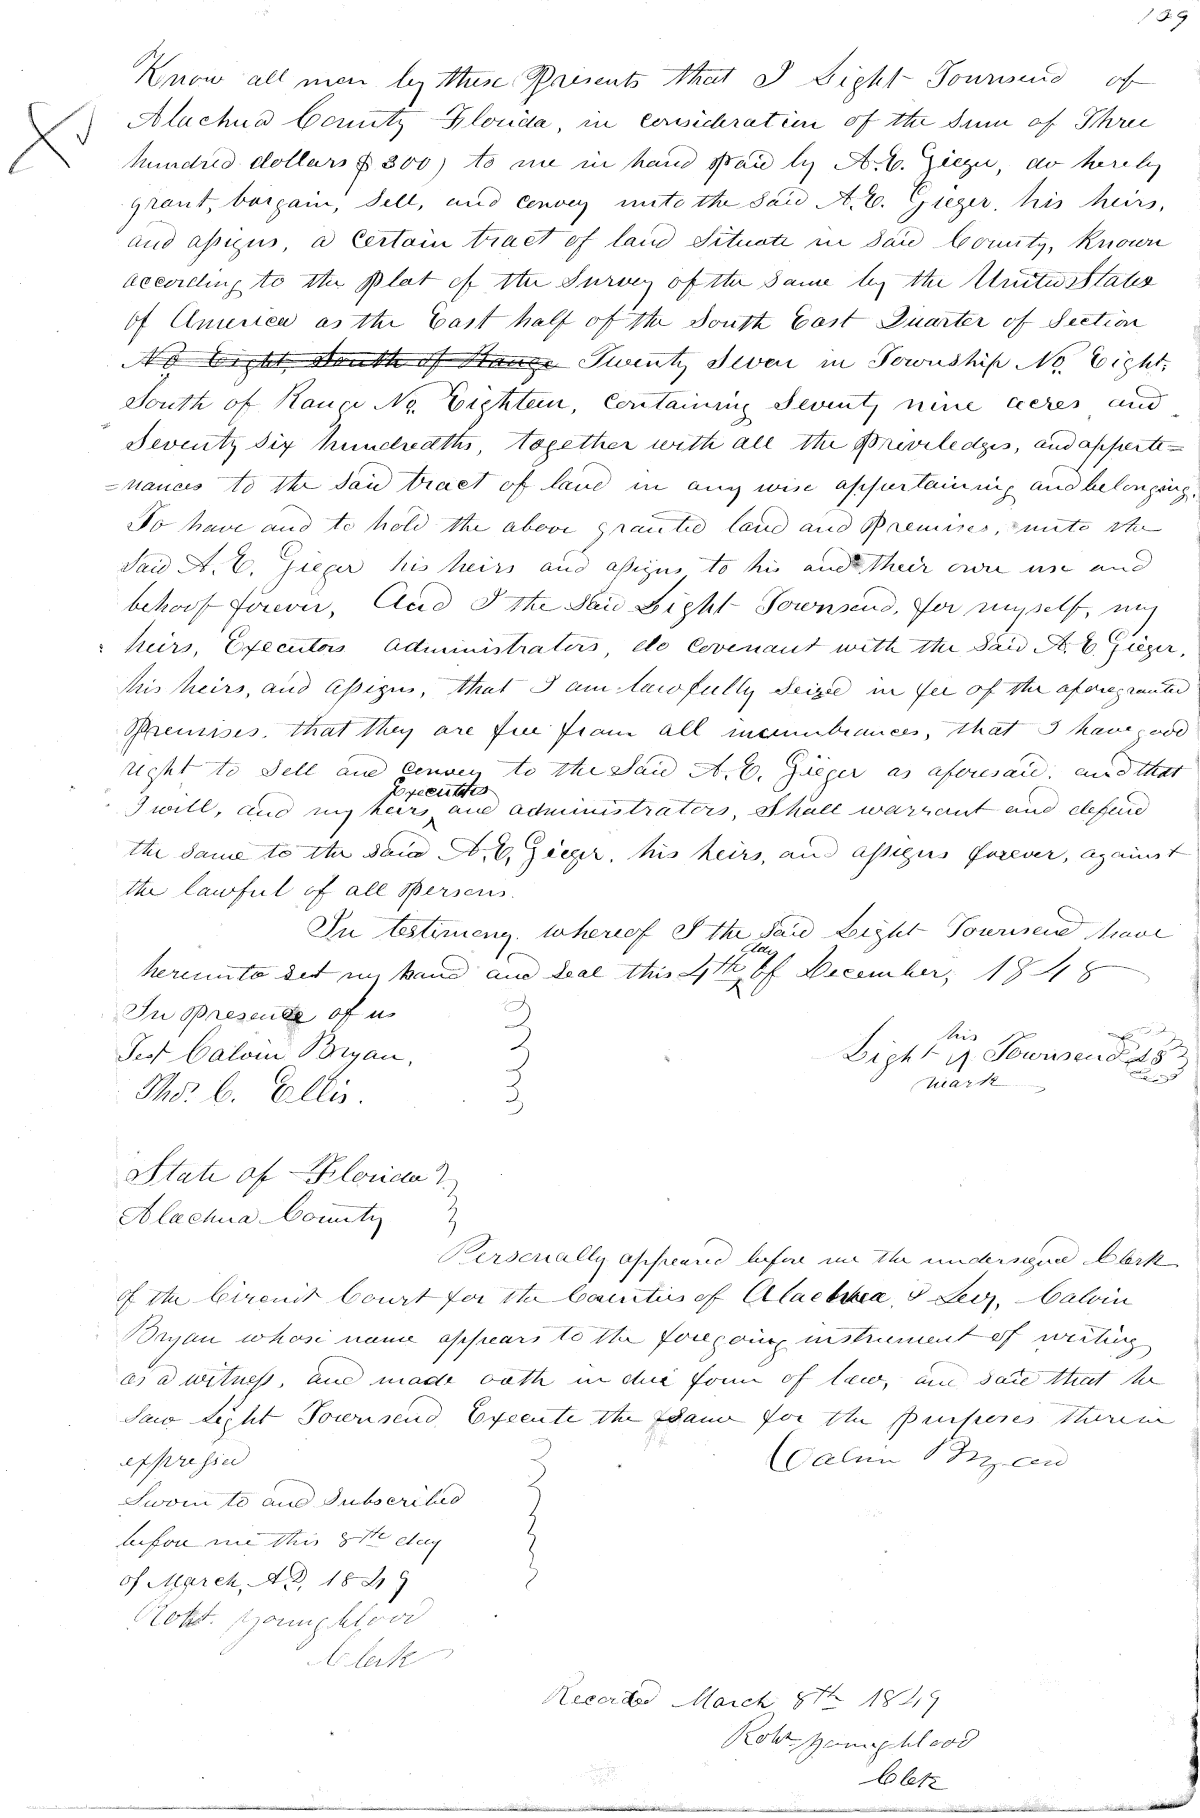 139
Know all men by these Presents that I Light Townsend of
Alachua County Florida, in consideration of the Sum of Three
hundred dollars $300) to me in hand Paid by A. E. Gieger, do hereby
grant, bargain, Sell, and convey unto the Said A. E. Gieger, his heirs,
and assigns, a Certain tract of land Situate in Said County, Known
according to the Plat of the Survey of the Same by the United States
of America as the East half of the South East Quarter of Section
No Eight South of Range Twenty Seven in Township No. Eight,
South of Range No. Eighteen, Containing Seventy nine acres and
Seventy Six hundredths, together with all the Priviledges, and apperte=
=nances to the Said tract of land in any wise appertaining and belonging.
To have and to hold the above granted land and Premises, unto the
Said A. E. Gieger his heirs and assigns to his and their own use and
behoof forever, And I the Said Light Townsend, for myself, my
heirs, Executors administrators, do Covenant with the Said A. E. Gieger,
his heirs, and assigns, that I am lawfully Seized in fee of the aforegranted
Premises, that they are free from all incumbrances, that I have good
right to Sell and convey to the Said A. E. Gieger as aforesaid, and that
Executors
I will, and my heirs, and administrators, Shall warrant and defend
the Same to the Said A. E. Gieger, his heirs, and assigns forever, against
the lawful of all Persons.
In testimony whereof I the Said Light Townsend have
day
hereunto Set my hand and Seal this 4th of December, 1848
In Presence of us
Test Calvin Bryan,
Thos. C. Ellis.
his
Light X Townsend LS
mark
State of Florida
Alachua County
Personally appeared before me the undersigned Clerk
of the Circuit Court for the Counties of Alachua & Levy, Calvin
Bryan whose name appears to the foregoing instrument of writing
as a witness, and made oath in due form of law, and said that he
Saw Light Townsend Execute the Same for the purposes therein
expressed
Calvin Bryan
Sworn to and Subscribed
before me this 8th day
of March, A.D. 1849
Robt. Youngblood
Clerk
Recorded March 8th 1849
Robt. Youngblood
Clerk